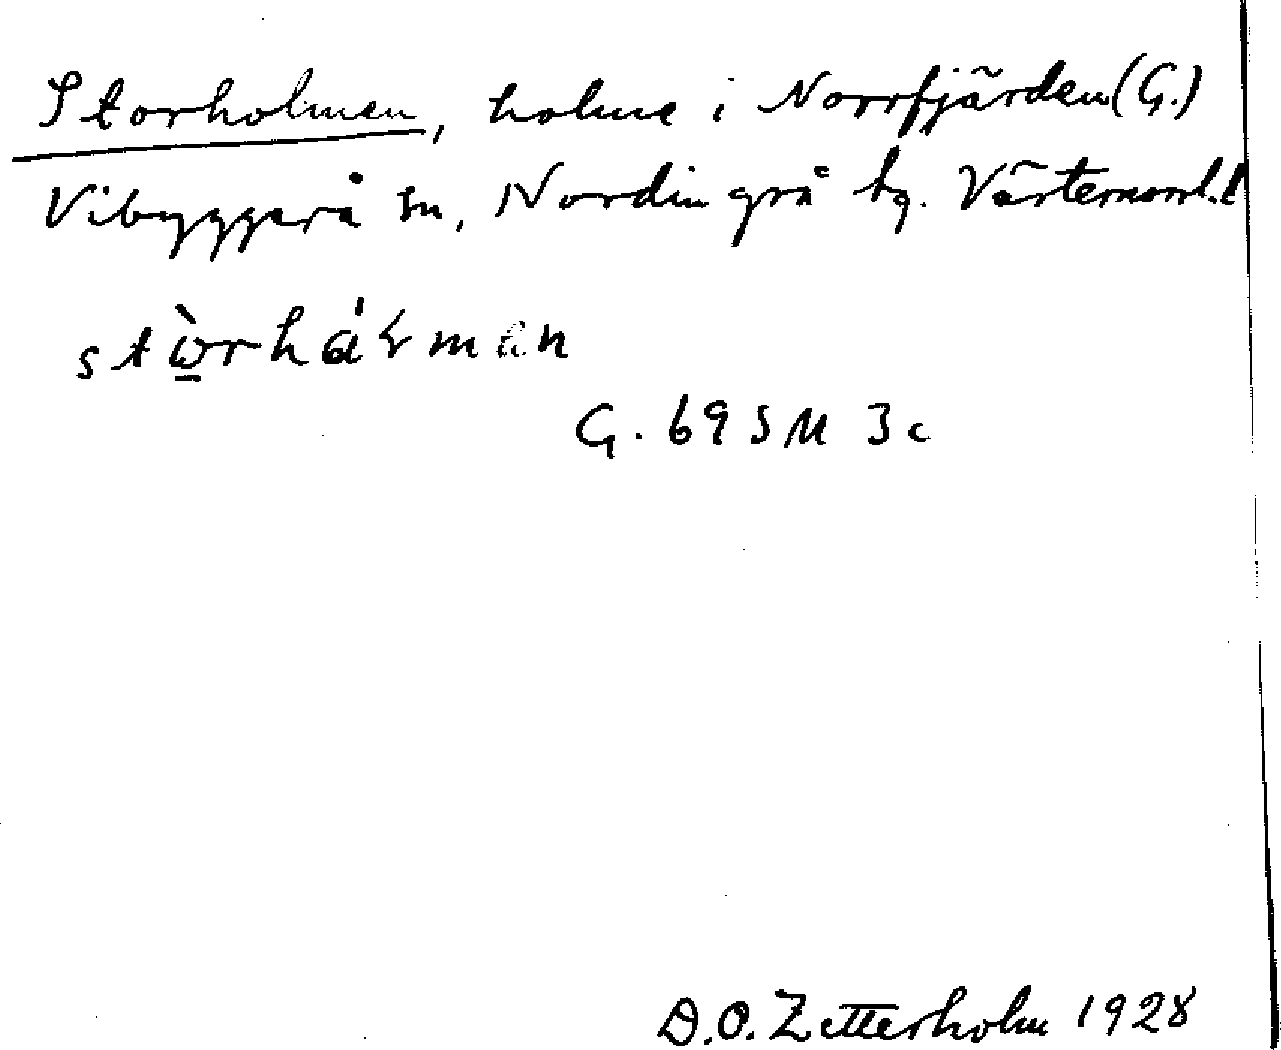 Storholmen, holme i Norrfjärden (G.)
Vibyggerå sn, Nordingrå tg. Västernorrl. l
G. 69 SM 3c
D.O. Zetterholm 1928